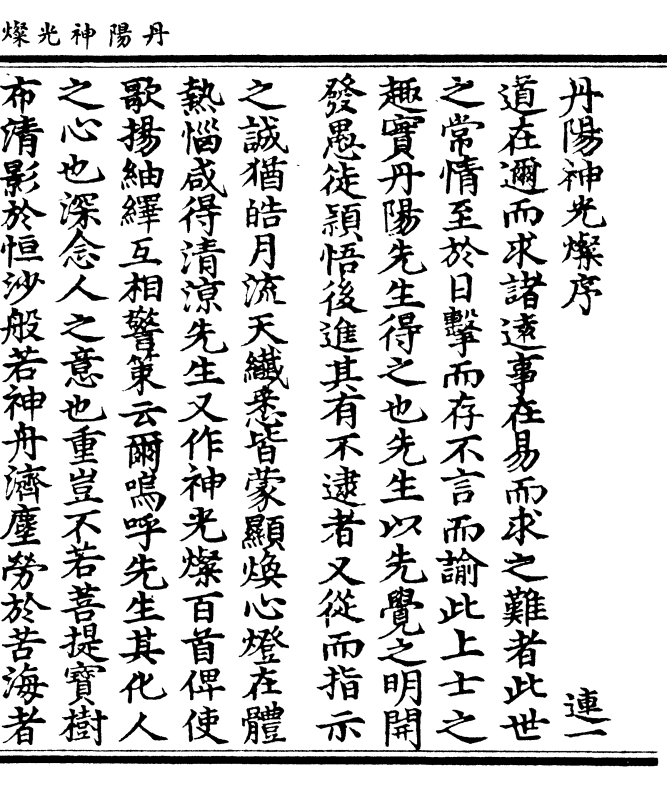 丹陽神光燦
丹陽神光燦序 連一
道在邇而求諸遠事在易而求之難者此世
之常情至於日擊而存不言而諭此上士之
趣實丹陽先生得之也先生以先覺之明開
發愚徒穎悟後進其有不逮者又從而指示
之誠猶皓月流天纖悉皆蒙顯煥心燈在體
熱惱咸得清涼先生又作神光燦百首俾使
歌揚紬繹互相警策云爾嗚呼先生其化人
之心也深念人之意也重豈不若菩提寶樹
布清影於恒沙般若神舟濟塵勞於苦海者